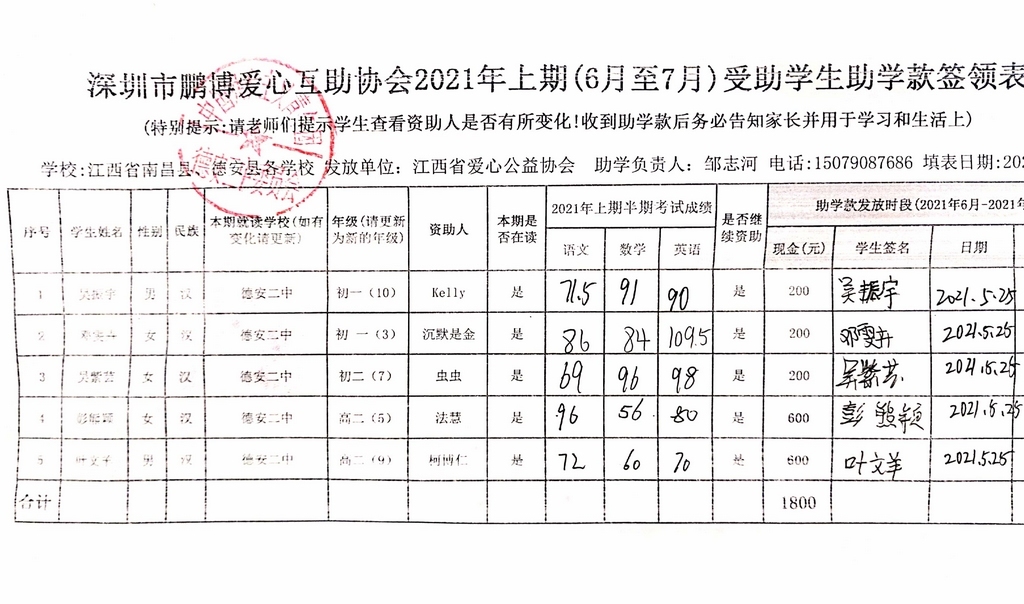 深圳市鹏博爱心互助协会2021年上期(6月至7月)受助学生助学款签领表
(特别提示:请老师们提示学生查看资助人是否有所变化!收到助学款后务必告知家长并用于学习和生活上)
学校:江西省南昌县、德安县各学校 发放单位：江西省爱心公益协会 助学负责人：邹志河 电话:15079087686 填表日期:202
序号 学生姓名 性别 民族 本期就读学校(如有变化请更新) 年级(请更新为新的年级) 资助人 本期是否在读 2021年上期半期考试成绩 是否继续资助 助学款发放时段(2021年6月-2021年
语文 数学 英语 现金(元) 学生签名 日期
1 吴振宇 男 汉 德安二中 初一（10） Kelly 是 71.5 91 90 是 200 吴振宇 2021.5.25
2 女 汉 德安二中 初一（3） 沉默是金 是 86 84 109.5 是 200 2021.5.25
3 吴紫芸 女 汉 德安二中 初二（7） 虫虫 是 69 96 98 是 200 吴紫芸 2021.5.25
4 女 汉 德安二中 高二（5） 法慧 是 96 56 80 是 600 2021.5.25
5 男 汉 德安二中 高二（9） 柯博仁 是 72 60 70 是 600 叶文羊 2021.5.25
合计 1800